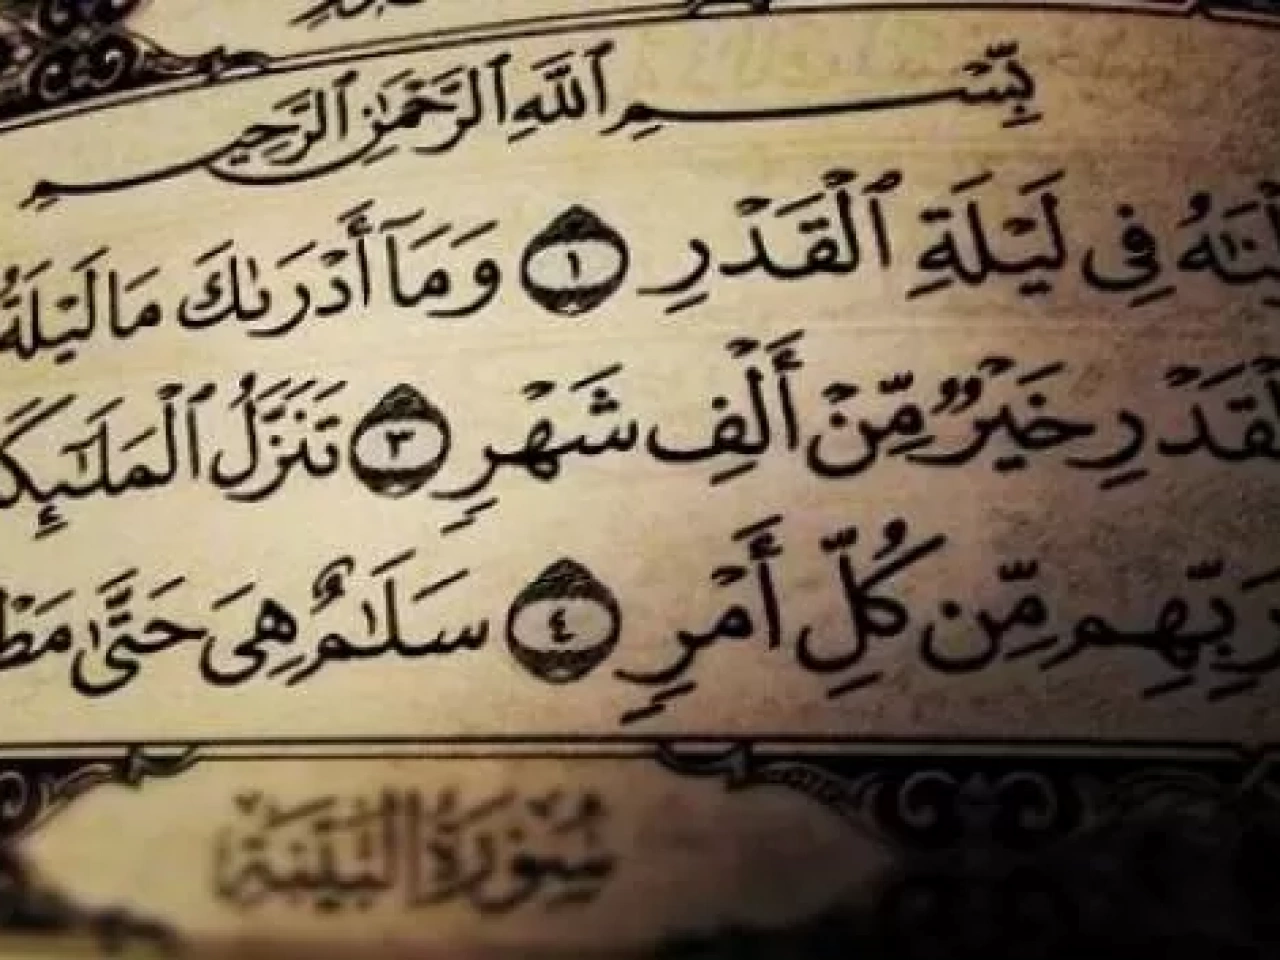 بِسْمِ ٱللَّهِ ٱلرَّحْمَٰنِ ٱلرَّحِيمِ
فِى لَيْلَةِ ٱلْقَدْرِ ١ وَمَآ أَدْرَىٰكَ مَا لَيْلَةُ
خَيْرٌ مِّنْ أَلْفِ شَهْرٍ ٣ تَنَزَّلُ
رَبِّهِم مِّن كُلِّ أَمْرٍ ٤ سَلَٰمٌ هِىَ حَتَّىٰ
سُورَةُ البَيِّنَةِ